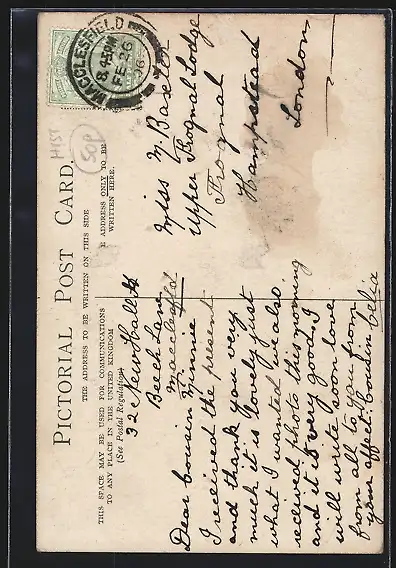 PICTORIAL POST CARD.
THE ADDRESS TO BE WRITTEN ON THIS SIDE
THIS SPACE MAY BE USED FOR COMMUNICATIONS
TO ANY PLACE IN THE UNITED KINGDOM
(See Postal Regulation)
E ADDRESS ONLY TO BE
WRITTEN HERE.
HIST
50p
MACCLESFIELD
8.45PM
FE 26
06
32 New Hall St
Beech Lane
Macclesfld
Dear Cousin Winnie
I received the present
and thank you very
much it is lovely just
what I wanted we also
received photo this morning
and it is very good. I
will write soon love
from all to you from
your affect: Cousin Celia
Miss M. Baxter
Upper Frognal Lodge
Frognal
Hampstead
London